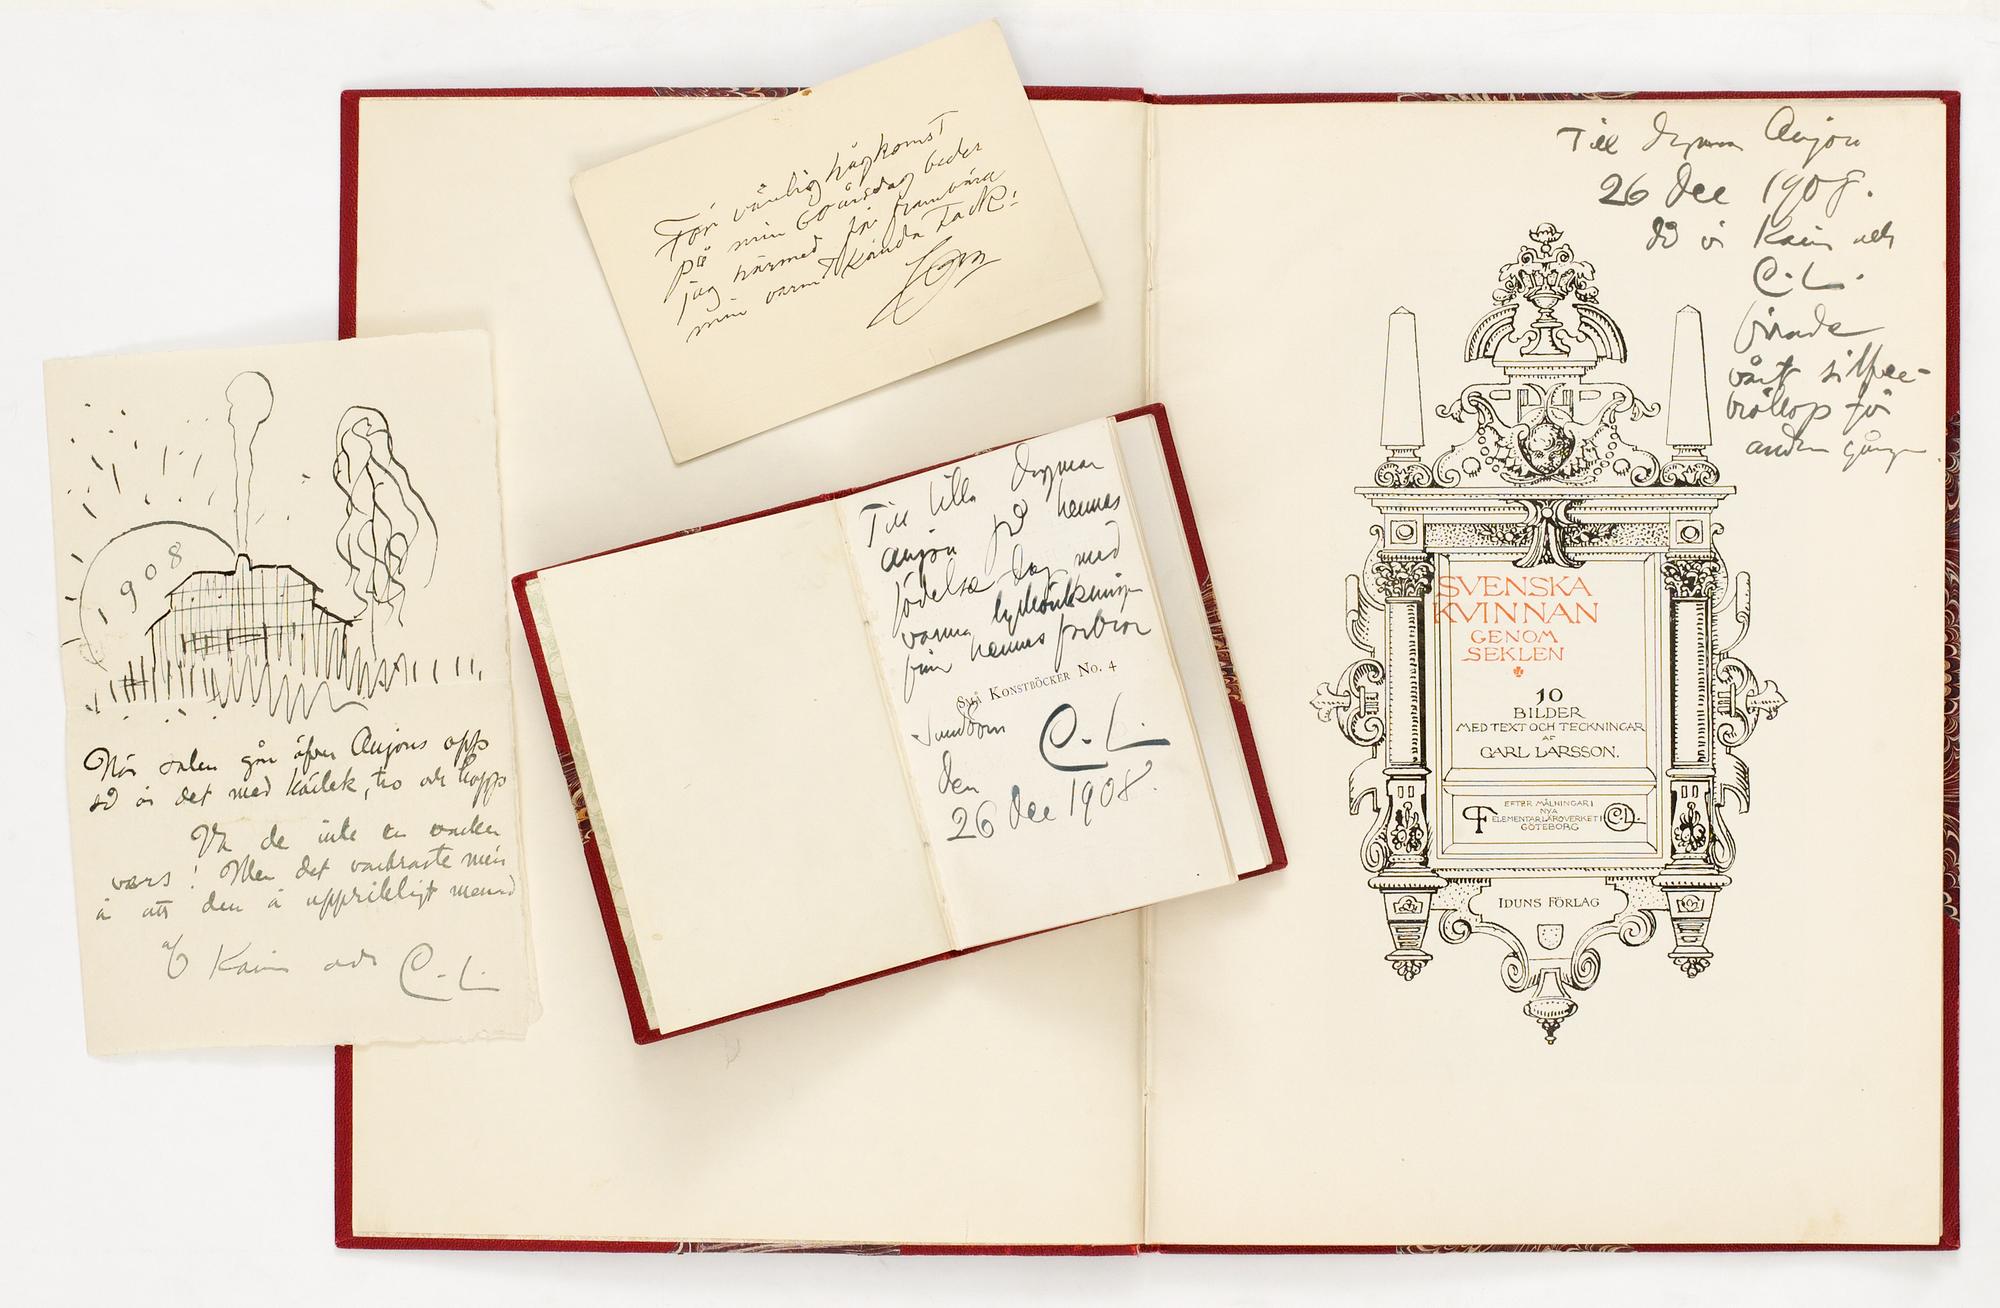 För vänlig hågkomst
på min 60årsdag beder
jag härmed få frambära
min varmt kända Tack!
Till Dagmar Anjou
26 Dec 1908.
då vi Karin och
C. L.
firade
vårt silfver-
bröllop för
andra gången
SVENSKA
KVINNAN
GENOM
SEKLEN
10
BILDER
MED TEXT OCH TECKNINGAR
AF
CARL LARSSON.
EFTER MÅLNINGAR I
NYA
ELEMENTARLÄROVERKET I
GÖTEBORG
IDUNS FÖRLAG
Till lilla Dagmar
Anjou på hennes
födelsedag med
varma lyckönskningar
från hennes farbror
Små Konstböcker No. 4
Sundborn
C. L.
den
26 Dec 1908.
1908
När solen går öfver Anjous opp
så är det med kärlek, tro och hopp
va de inte en vacker
vers! Men det vackraste med'en
ä att den ä uppriktigt menad
af Karin och C. L.